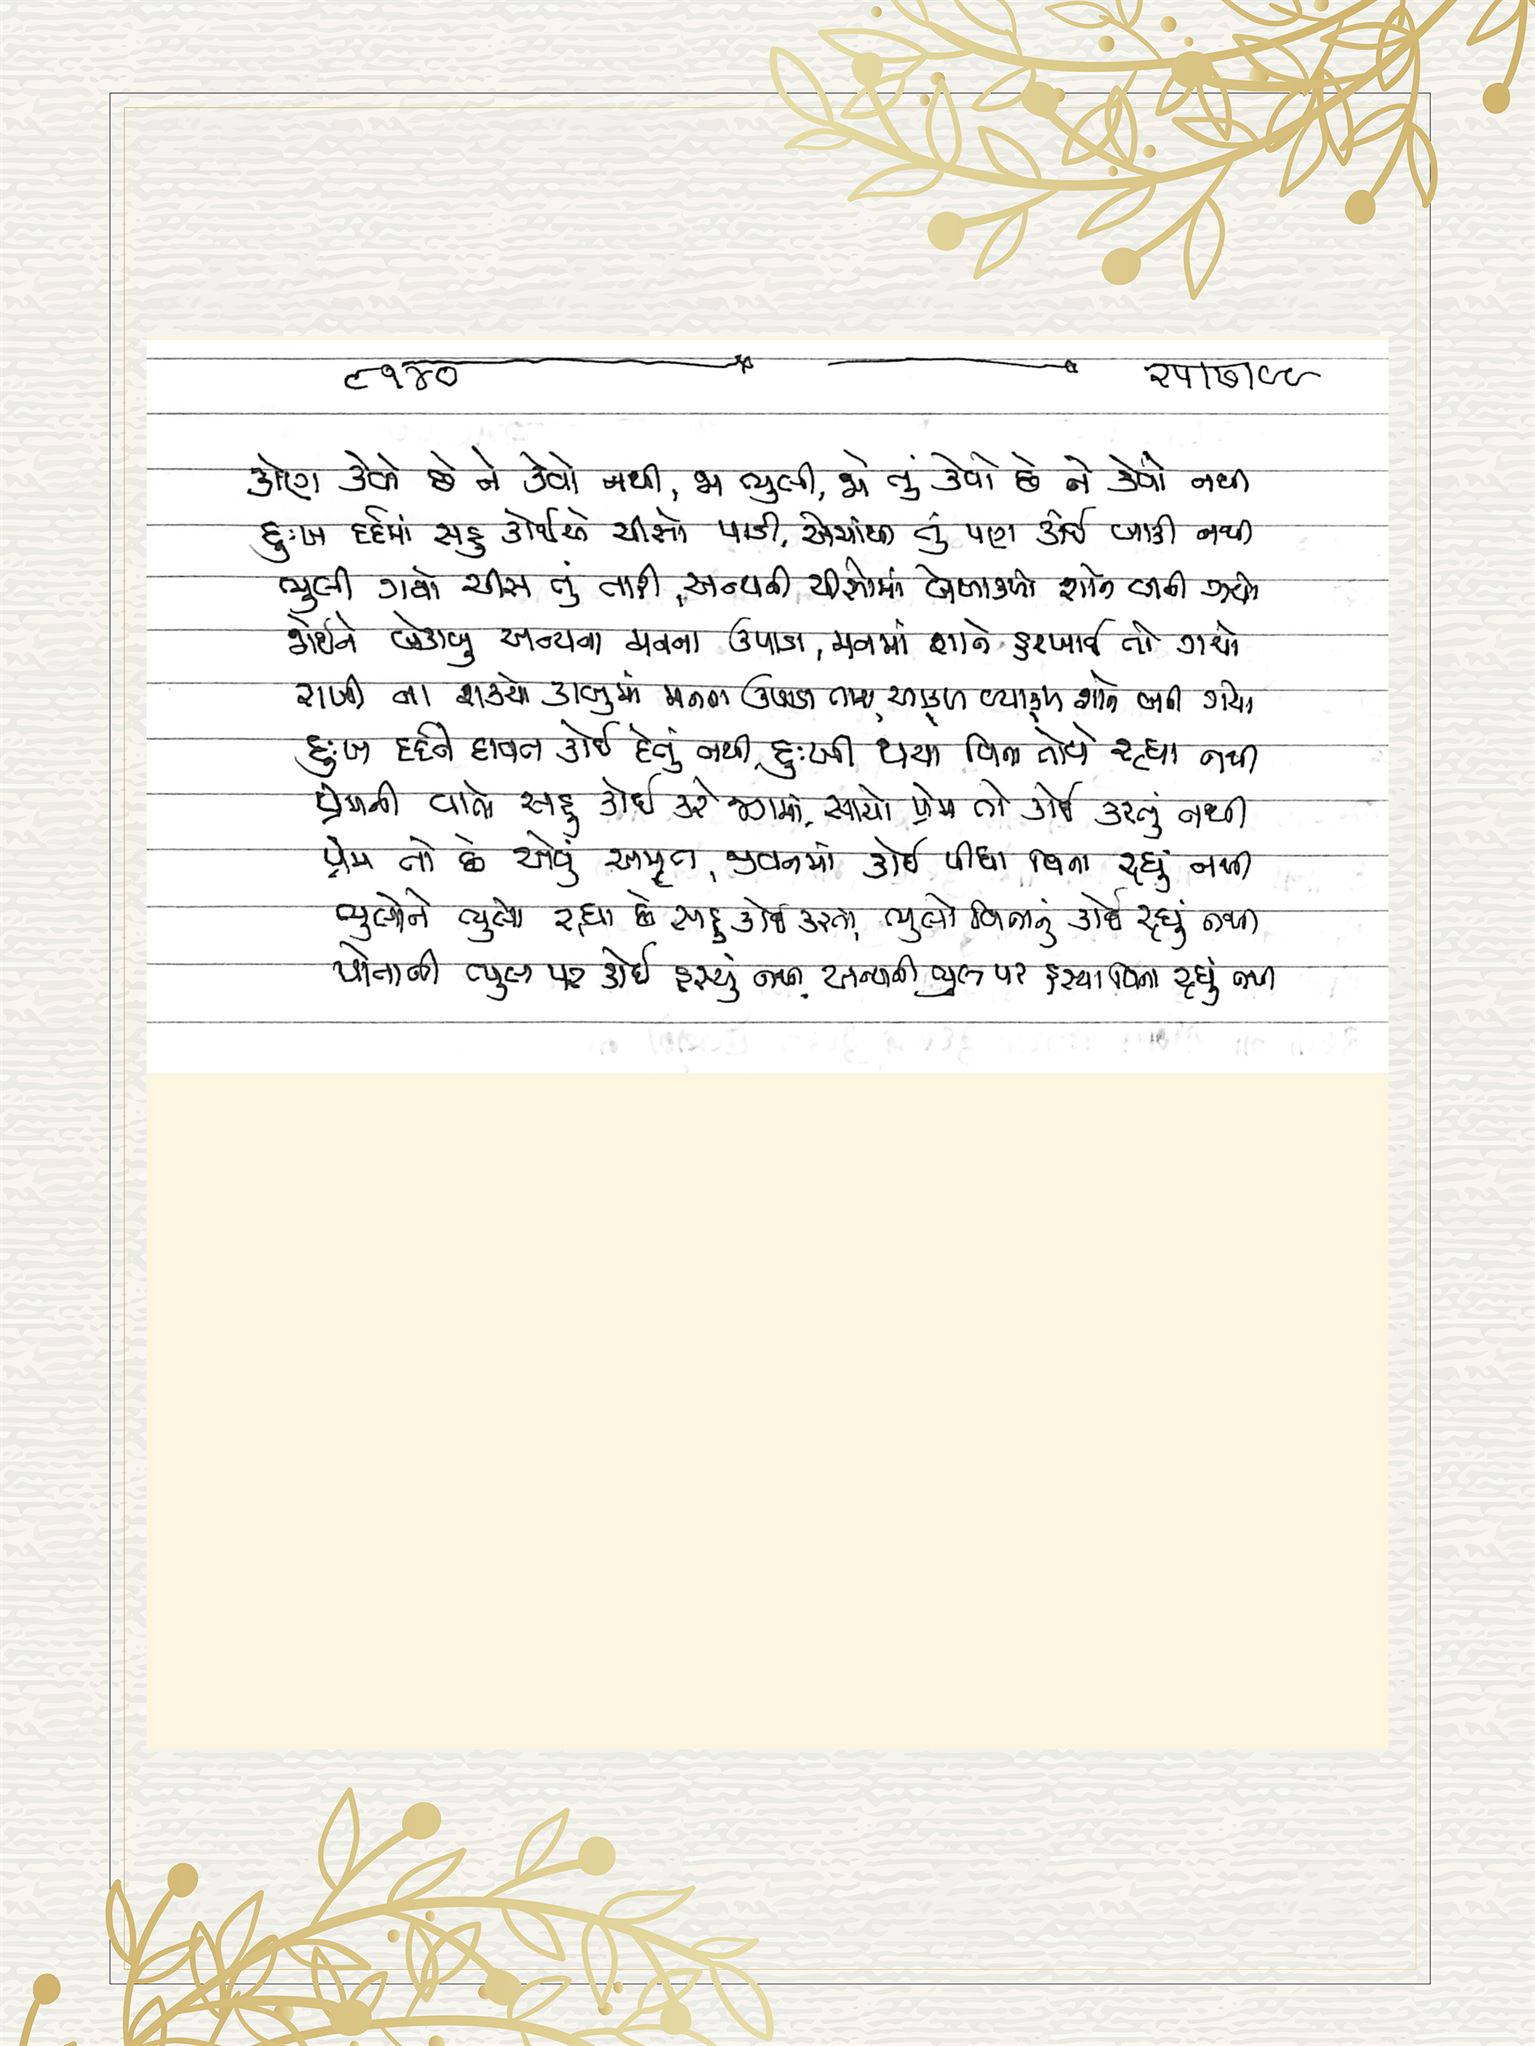 ૯૧૪૦ ૨૫।૭।૯૯
કોણ કેવો છે ને કેવો નથી, જા ભુલી, જો તું કેવો છે ને કેવો નથી
દુઃખ દર્દમાં સહુ કોઈએ ચીસો પાડી, એમાંથી તું પણ કાંઈ બાકી નથી
ભુલી ગયો ચીસ તું તારી, અન્યની ચીસોમાં શાને બની ગયો
જોઈને બેકાબુ અન્યના મનના ઉપાડા, મનમાં શાને હરખાઈ તો ગયો
રાખી ના શક્યો કાબુમાં મનના ઉપાડા તારા, આકુળ વ્યાકુળ શાને બની ગયો
દુઃખ દર્દને દાવત કોઈ દેતું નથી, દુઃખી થયા વિના તોયે રહ્યા નથી
પ્રેમની વાતો સહુ કોઈ કરે જગમાં, સાચો પ્રેમ તો કોઈ કરતું નથી
પ્રેમ તો છે એવું અમૃત, જીવનમાં કોઈ પીધા વિના રહ્યું નથી
ભુલોને ભુલો રહ્યા છે સહુ કોઈ કરતા, ભુલો વિનાનું કોઈ રહ્યું નથી
પોતાની ભુલ પર કોઈ હસ્યું નથી, અન્યની ભુલ પર હસ્યા વિના રહ્યું નથી